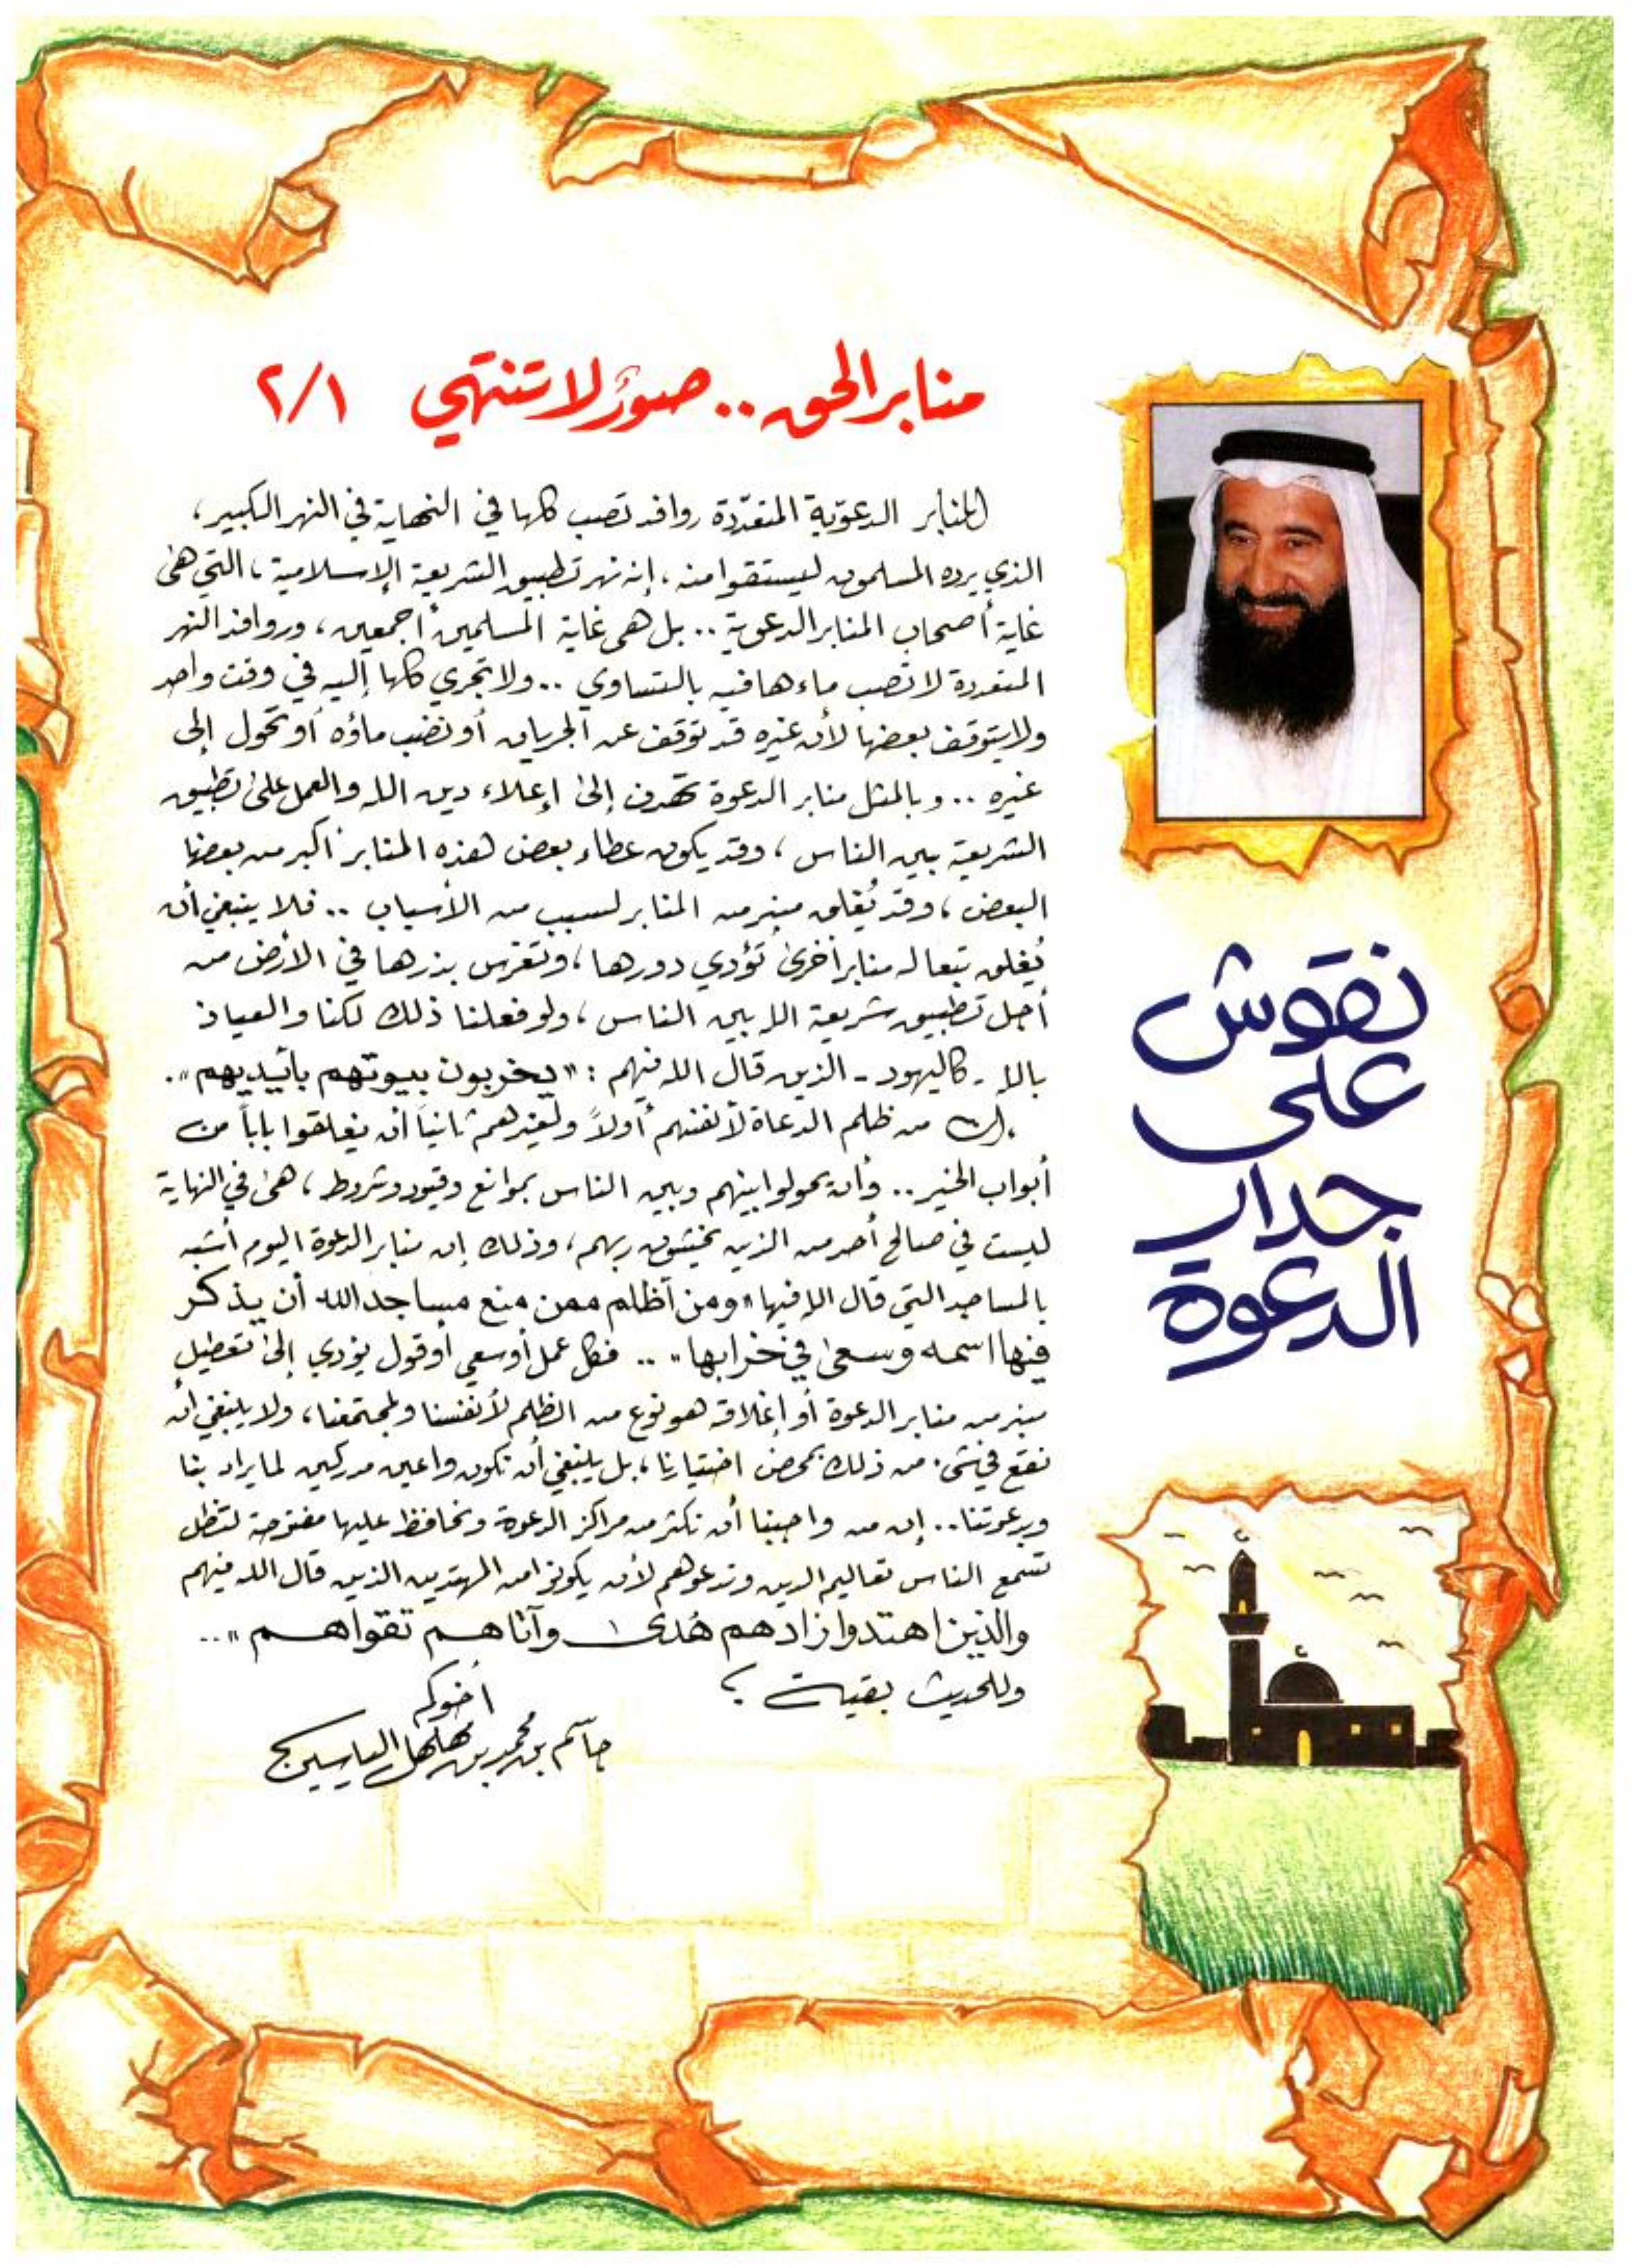 منابر الحق .. صورٌ لا تنتهي ٢/١
المنابر الدعوية المتعددة روافد تصب كلها في النهاية في النهر الكبير،
الذي يرده المسلمون ليستقوا منه، إنه نهر تطبيق الشريعة الإسلامية، التي هي
غاية أصحاب المنابر الدعوية .. بل هي غاية المسلمين أجمعين، وروافد النهر
المتعددة لا تصب ماءها فيه بالتساوي .. ولا تجري كلها إليه في وقت واحد
ولا يتوقف بعضها لأن غيره قد توقف عن الجريان أو نضب ماؤه أو تحول إلى
غيره .. وبالمثل منابر الدعوة تهدف إلى إعلاء دين الله والعمل على تطبيق
الشريعة بين الناس، وقد يكون عطاء بعض هذه المنابر أكبر من بعضها
البعض، وقد يُغلق منبر من المنابر لسبب من الأسباب .. فلا ينبغي أن
يُغلق تبعا له منابر أخرى تؤدي دورها، وتغرس بذرها في الأرض من
أجل تطبيق شريعة الله بين الناس، ولو فعلنا ذلك لكنا والعياذ
بالله - كاليهود - الذين قال الله فيهم : « يخربون بيوتهم بأيديهم ».
إن من ظلم الدعاة لأنفسهم أولاً ولغيرهم ثانياً أن يغلقوا باباً من
أبواب الخير .. وأن يحولوا بينهم وبين الناس بموانع وقيود وشروط، هي في النهاية
ليست في صالح أحد من الذين يخشون ربهم، وذلك إن منابر الدعوة اليوم أشبه
بالمساجد التي قال الله فيها « ومن أظلم ممن منع مساجد الله أن يذكر
فيها اسمه وسعى في خرابها » .. فكل عمل أو سعي أو قول يؤدي إلى تعطيل
منبر من منابر الدعوة أو إغلاقه هو نوع من الظلم لأنفسنا ولمجتمعنا، ولا ينبغي أن
نقع في شيء من ذلك بمحض اختيارنا، بل ينبغي أن نكون واعين مدركين لما يراد بنا
وبدعوتنا .. إن من واجبنا أن نكثر من مراكز الدعوة ونحافظ عليها مفتوحة لتظل
تسمع الناس تعاليم الدين وتدعوهم لأن يكونوا من المهتدين الذين قال الله فيهم
والذين اهتدوا زادهم هُدى وآتاهم تقواهم » ...
وللحديث بقية ؟
أخوكم
جاسم بن محمد بن مهلهل الياسين
نقوش
على
جدار
الدعوة